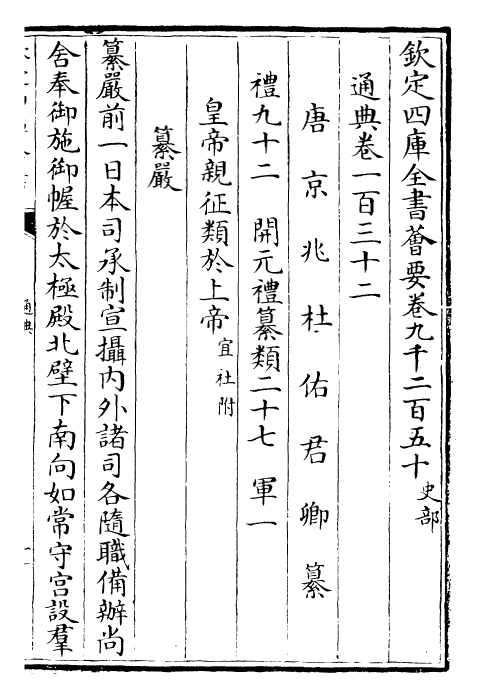 欽定四庫全書薈要卷九千二百五十 史部
通典卷一百三十二
唐京兆杜佑君卿纂
禮九十二 開元禮纂類二十七 軍一
皇帝親征類於上帝 宜社附
纂嚴
纂嚴前一日本司承制宣攝内外諸司各隨職備辦尚
舍奉御施御幄於太極殿北壁下南向如常守宫設羣
通典